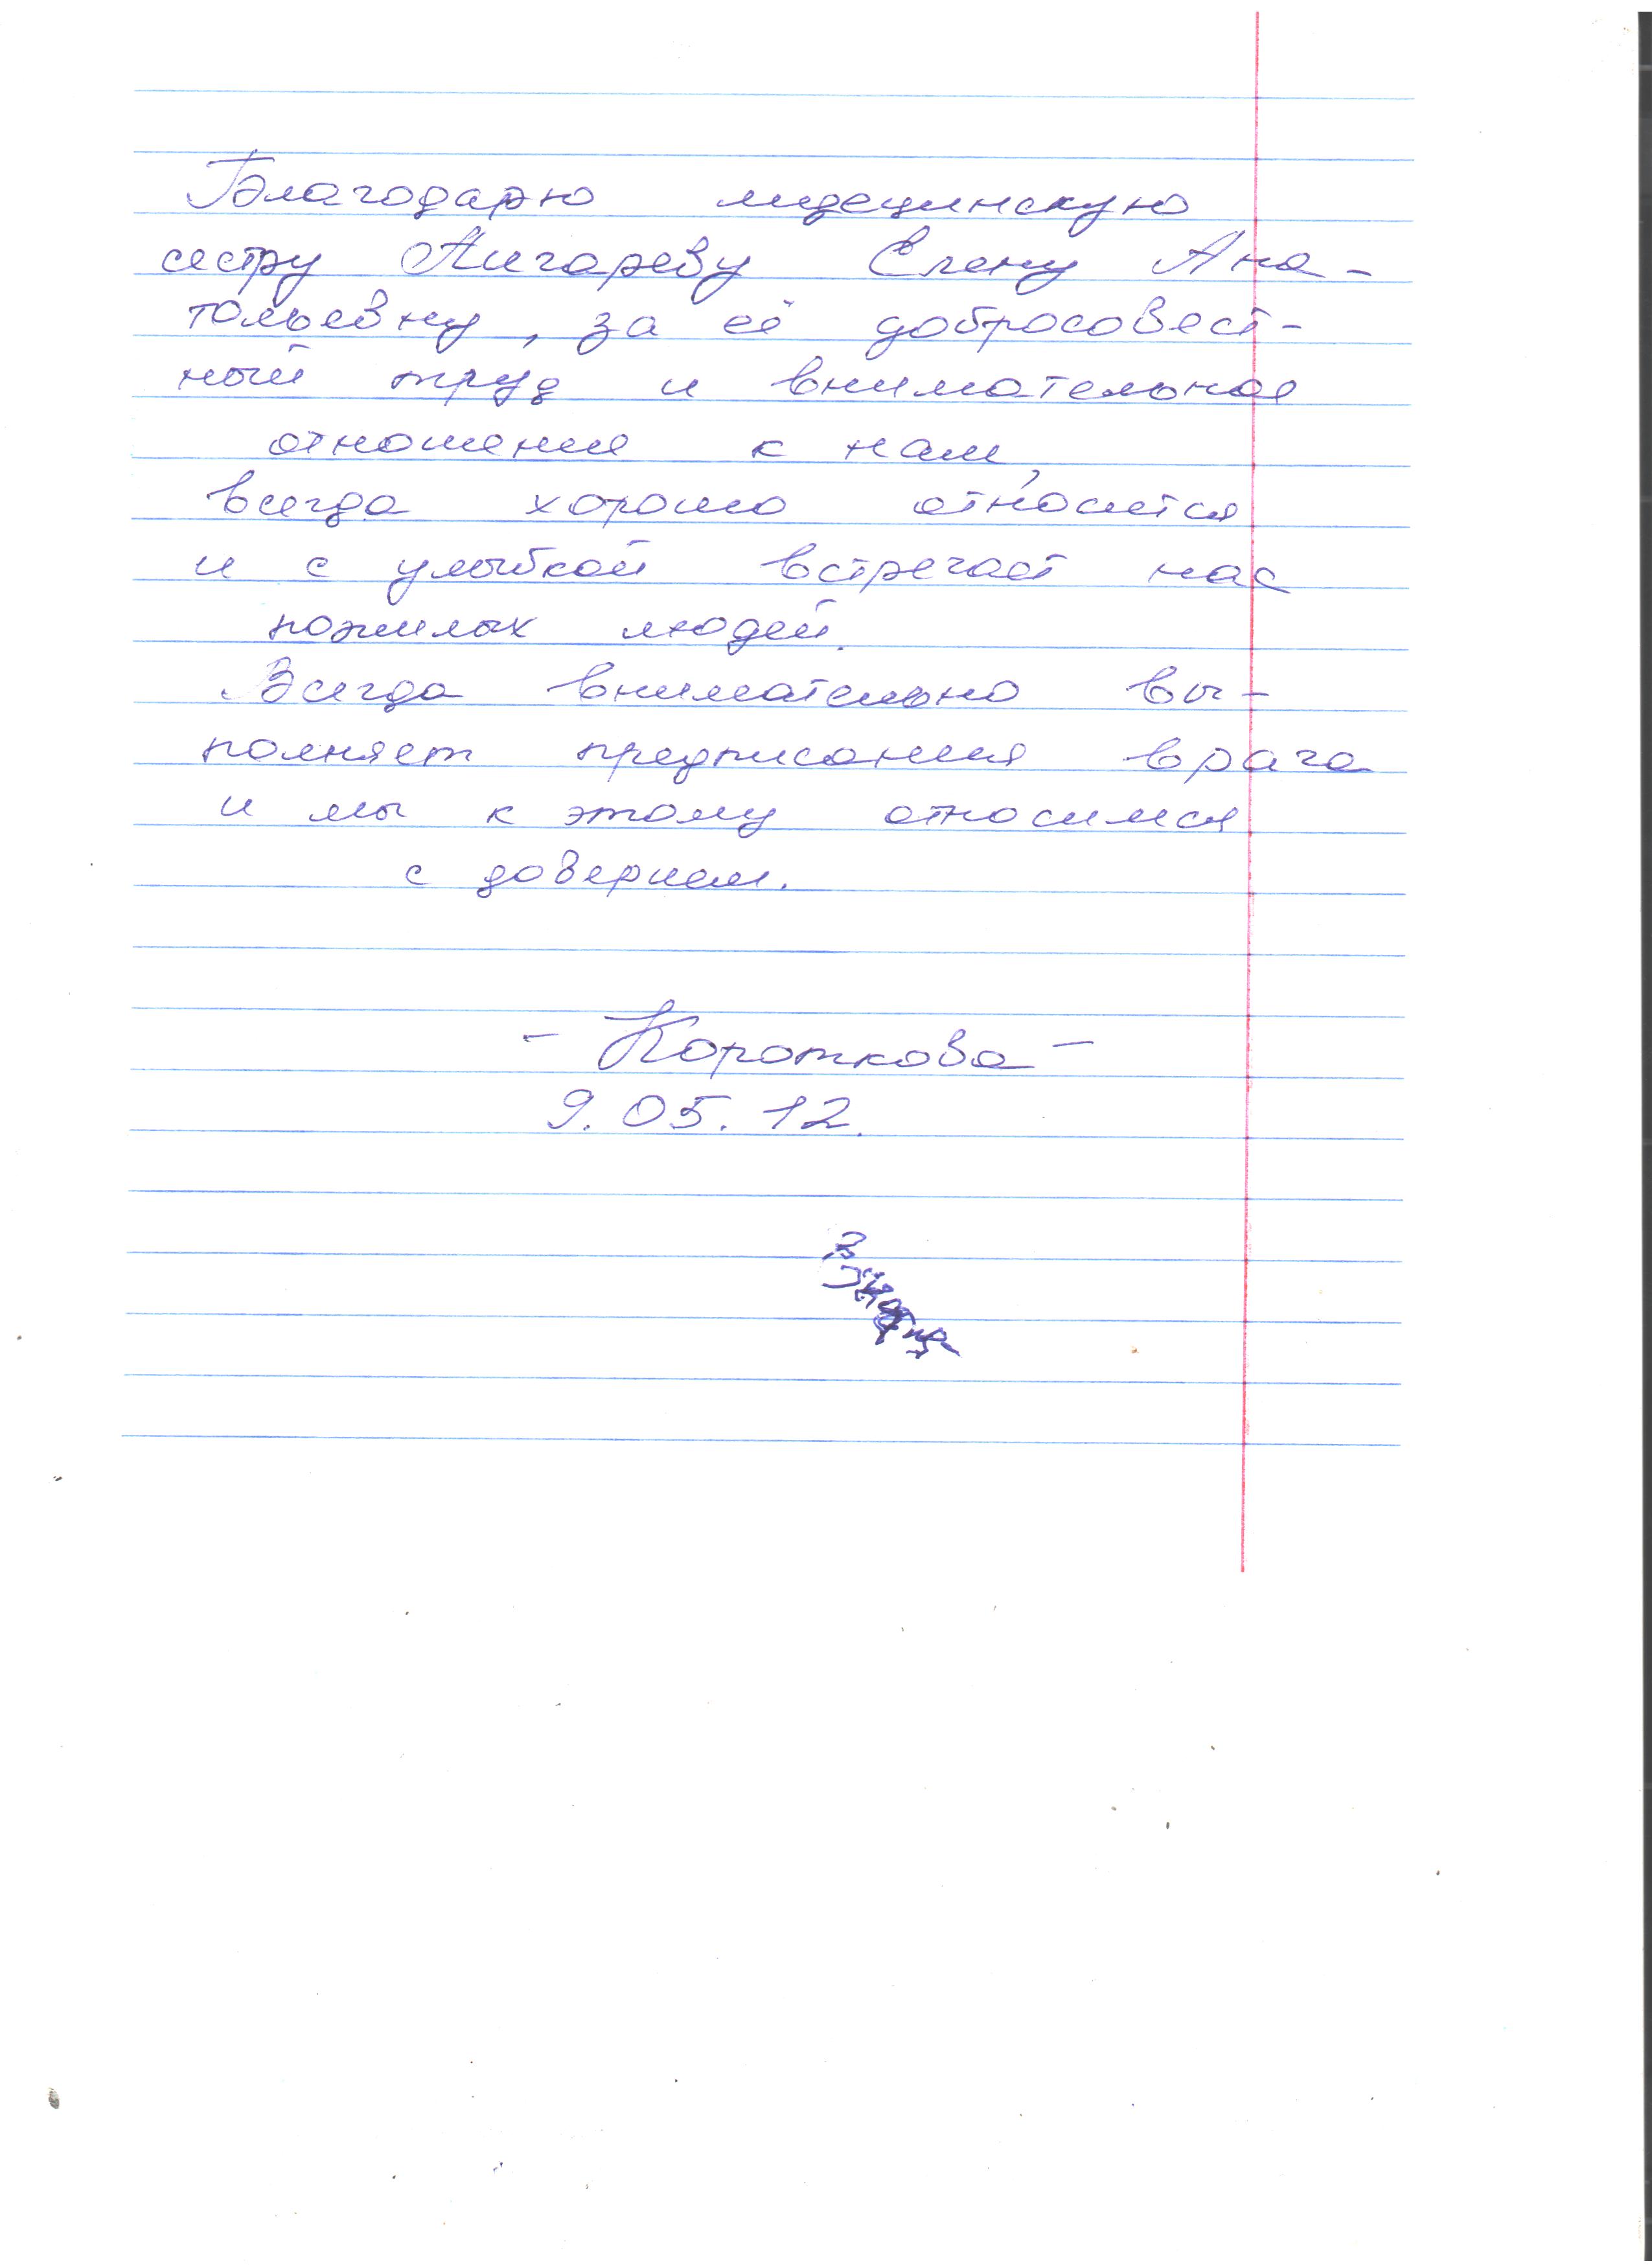 Благодарю мидецинскую
сестру Лигареву Елену Ана-
тольевну, за её добросовест-
ный труд и внимательное
отношение к нам,
всегда хорошо относится
и с улыбкой встречает нас
пожилых людей.
Всегда внимательно вы-
полняет предписания врача
и мы к этому относимся
с доверием.
- Короткова -
9.05.12.